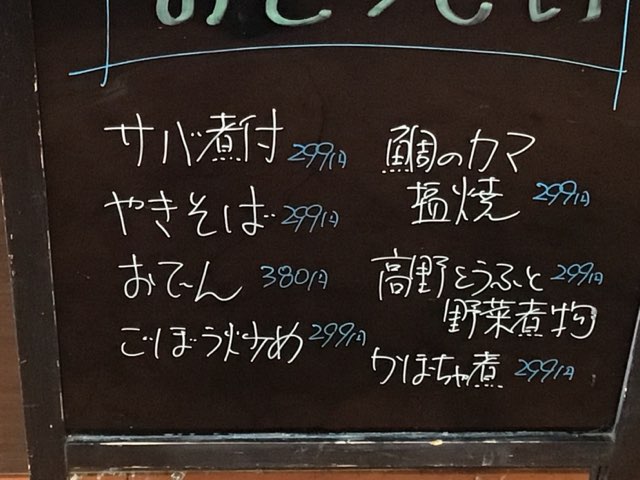 サバ煮付 299円
やきそば 299円
おでん 380円
ごぼう炒め 299円
鯛のカマ
塩焼 299円
高野とうふと 299円
野菜煮物
かぼちゃ煮 299円